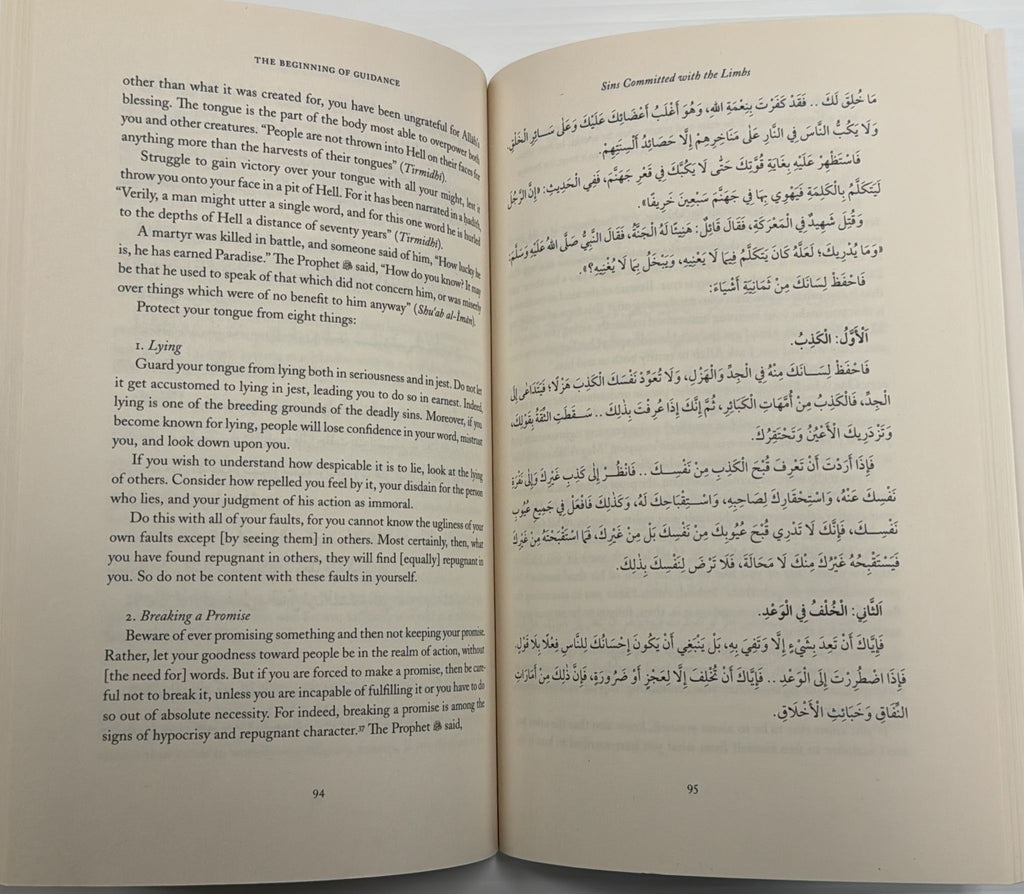 THE BEGINNING OF GUIDANCE
other than what it was created for, you have been ungrateful for Allāh's
blessing. The tongue is the part of the body most able to overpower both
you and other creatures. “People are not thrown into Hell on their faces for
anything more than the harvests of their tongues” (Tirmidhī).
Struggle to gain victory over your tongue with all your might, lest it
throw you onto your face in a pit of Hell. For it has been narrated in a hadith,
“Verily, a man might utter a single word, and for this one word he is hurled
to the depths of Hell a distance of seventy years” (Tirmidhī).
A martyr was killed in battle, and someone said of him, “How lucky he
is, he has earned Paradise.” The Prophet ﷺ said, “How do you know? It may
be that he used to speak of that which did not concern him, or was miserly
over things which were of no benefit to him anyway” (Shuʿab al-Īmān).
Protect your tongue from eight things:
1. Lying
Guard your tongue from lying both in seriousness and in jest. Do not let
it get accustomed to lying in jest, leading you to do so in earnest. Indeed,
lying is one of the breeding grounds of the deadly sins. Moreover, if you
become known for lying, people will lose confidence in your word, mistrust
you, and look down upon you.
If you wish to understand how despicable it is to lie, look at the lying
of others. Consider how repelled you feel by it, your disdain for the person
who lies, and your judgment of his action as immoral.
Do this with all of your faults, for you cannot know the ugliness of your
own faults except [by seeing them] in others. Most certainly, then, what
you have found repugnant in others, they will find [equally] repugnant in
you. So do not be content with these faults in yourself.
2. Breaking a Promise
Beware of ever promising something and then not keeping your promise.
Rather, let your goodness toward people be in the realm of action, without
[the need for] words. But if you are forced to make a promise, then be care-
ful not to break it, unless you are incapable of fulfilling it or you have to do
so out of absolute necessity. For indeed, breaking a promise is among the
signs of hypocrisy and repugnant character.³⁷ The Prophet ﷺ said,
94
Sins Committed with the Limbs
مَا خُلِقَ لَكَ .. فَقَدْ كَفَرْتَ بِنِعْمَةِ اللهِ، وَهُوَ أَغْلَبُ أَعْضَائِكَ عَلَيْكَ وَعَلَى سَائِرِ الْخَلْقِ،
وَلَا يَكُبُّ النَّاسَ فِي النَّارِ عَلَى مَنَاخِرِهِمْ إِلَّا حَصَائِدُ أَلْسِنَتِهِمْ.
فَاسْتَظْهِرْ عَلَيْهِ بِغَايَةِ قُوَّتِكَ حَتَّى لَا يَكُبَّكَ فِي قَعْرِ جَهَنَّمَ، فَفِي الْحَدِيثِ: «إِنَّ الرَّجُلَ
لَيَتَكَلَّمُ بِالْكَلِمَةِ فَيَهْوِي بِهَا فِي جَهَنَّمَ سَبْعِينَ خَرِيفًا».
وَقُتِلَ شَهِيدٌ فِي الْمَعْرَكَةِ، فَقَالَ قَائِلٌ: هَنِيئًا لَهُ الْجَنَّةُ، فَقَالَ النَّبِيُّ صَلَّى اللهُ عَلَيْهِ وَسَلَّمَ:
«وَمَا يُدْرِيكَ؛ لَعَلَّهُ كَانَ يَتَكَلَّمُ فِيمَا لَا يَعْنِيهِ، وَيَبْخَلُ بِمَا لَا يُغْنِيهِ؟».
فَاحْفَظْ لِسَانَكَ مِنْ ثَمَانِيَةِ أَشْيَاءَ:
اَلْأَوَّلُ: الْكَذِبُ.
فَاحْفَظْ لِسَانَكَ مِنْهُ فِي الْجِدِّ وَالْهَزْلِ، وَلَا تُعَوِّدْ نَفْسَكَ الْكَذِبَ هَزْلًا؛ فَيَتَدَاعَى إِلَى
الْجِدِّ، فَالْكَذِبُ مِنْ أُمَّهَاتِ الْكَبَائِرِ، ثُمَّ إِنَّكَ إِذَا عُرِفْتَ بِذٰلِكَ .. سَقَطَتِ الثِّقَةُ بِقَوْلِكَ،
وَتَزْدَرِيكَ الْأَعْيُنُ وَتَحْتَقِرُكَ.
فَإِذَا أَرَدْتَ أَنْ تَعْرِفَ قُبْحَ الْكَذِبِ مِنْ نَفْسِكَ .. فَانْظُرْ إِلَى كَذِبِ غَيْرِكَ وَإِلَى نَفْرَةِ
نَفْسِكَ عَنْهُ، وَاسْتِحْقَارِكَ لِصَاحِبِهِ، وَاسْتِقْبَاحِكَ لَهُ، وَكَذٰلِكَ فَافْعَلْ فِي جَمِيعِ عُيُوبِ
نَفْسِكَ، فَإِنَّكَ لَا تَدْرِي قُبْحَ عُيُوبِكَ مِنْ نَفْسِكَ بَلْ مِنْ غَيْرِكَ، فَمَا اسْتَقْبَحْتَهُ مِنْ غَيْرِكَ
فَيَسْتَقْبِحُهُ غَيْرُكَ مِنْكَ لَا مَحَالَةَ، فَلَا تَرْضَ لِنَفْسِكَ بِذٰلِكَ.
اَلثَّانِي: الْخُلْفُ فِي الْوَعْدِ.
فَإِيَّاكَ أَنْ تَعِدَ بِشَيْءٍ إِلَّا وَتَفِيَ بِهِ، بَلْ يَنْبَغِي أَنْ يَكُونَ إِحْسَانُكَ لِلنَّاسِ فِعْلًا بِلَا قَوْلٍ،
فَإِذَا اضْطُرِرْتَ إِلَى الْوَعْدِ .. فَإِيَّاكَ أَنْ تُخْلِفَ إِلَّا لِعَجْزٍ أَوْ ضَرُورَةٍ، فَإِنَّ ذٰلِكَ مِنْ أَمَارَاتِ
النِّفَاقِ وَخَبَائِثِ الْأَخْلَاقِ.
95